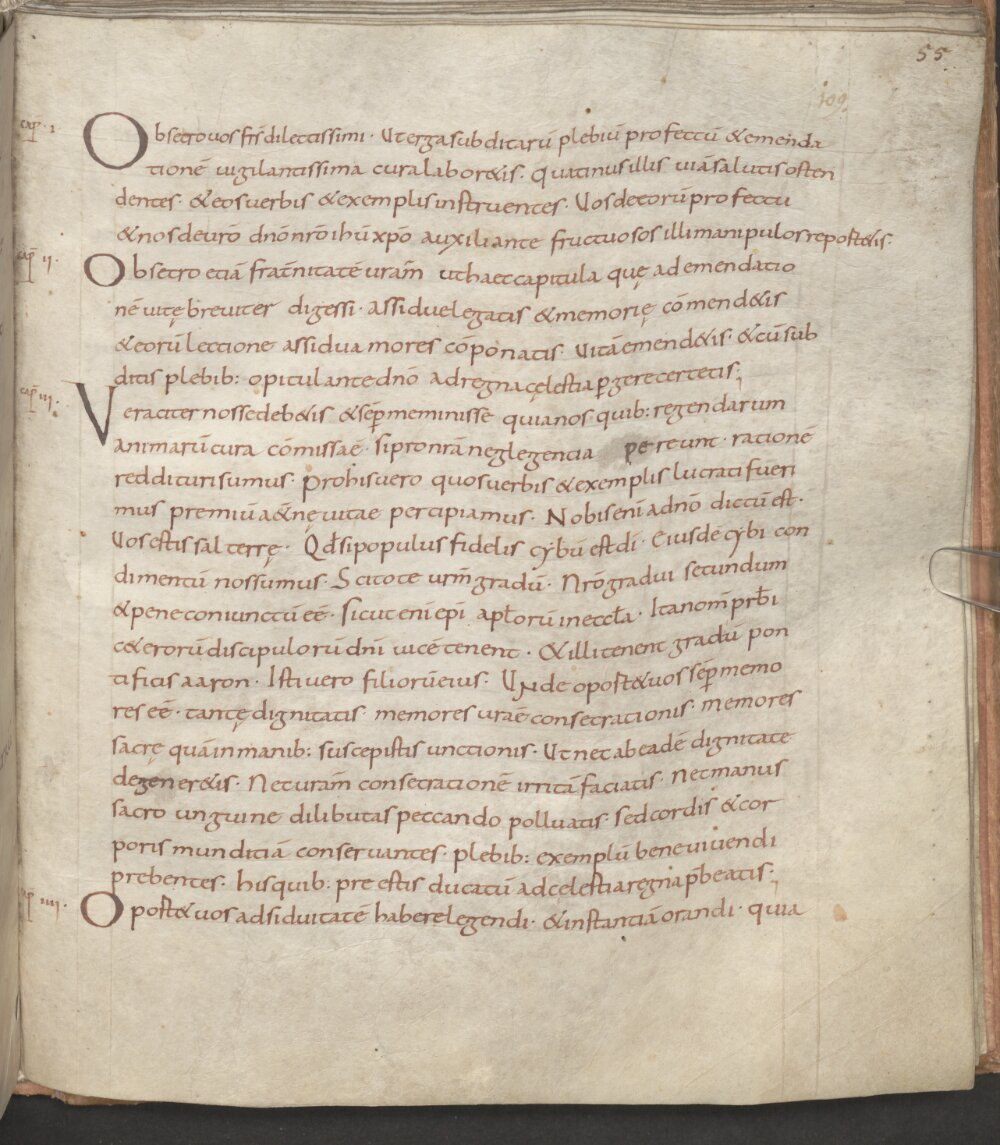 55
109
cap̄ · I
Obsecro vos frs̄ dilectissimi · Ut erga subditarū plebiū profectū & emenda
tionē vigilantissima cura labor&is · Quatinus illis viā salutis osten
dentes · & eos verbis & exemplis instruentes · Vos de eorū profectu
& nos de vr̄o dn̄o nr̄o ihū xp̄o auxiliante fructuosos illi manipulos report&is ·
cap̄ II ·
Obsecro etiā frat̄nitatē vr̄am ut haec capitula quę ad emendatio
nē vitę breviter digessi · assidue legatis & memorię cōmend&is
& eorū lectione assidua mores cōponatis · Vitā emend&is · & cū sub
ditis plebib: opitulante dn̄o ad regna cęlestia ꝑgere certetis ;
cap̄ III ·
Veraciter nosse deb&is & sēp meminisse quia nos quib: regendarum
animarū cura cōmissa ē · si pro nr̄a neglegencia pereunt · rationē
reddituri sumus · Pro his vero quos verbis & exemplis lucrati fueri
mus premiū a&nę vitae percipiamus · Nobis enī a dn̄o dictū est ·
Vos estis sal terrę · Qd̄ si populus fidelis cybū est dī · Eiusdē cybi con
dimentū nos sumus · Scitote vr̄m gradū · Nr̄o gradui secundum
& pene coniunctū eē · Sicut enī ep̄i apl̄orū in eccl̄a · Ita nom̄ prb̄i
c&erorū discipulorū dn̄i vicē tenent · & illi tenent gradū pon
tificis aaron · Isti vero filiorū eius · Unde oport& vos sēp memo
res eē · tantę dignitatis · memores vr̄ae consecrationis · memores
sacrę quā in manib: suscepistis unctionis · Ut nec ab eadē dignitate
degener&is · Nec vr̄am consecrationē irritā faciatis · Nec manus
sacro unguine dilibutas peccando polluatis · sed cordis & cor
poris munditiā conservantes · plebib: exemplū bene vivendi
prebentes · his quib: pre estis ducatū ad celestia regna p̄beatis ·
cap̄ IIII ·
Oport& vos adsiduitatē habere legendi · & instantiā orandi · quia